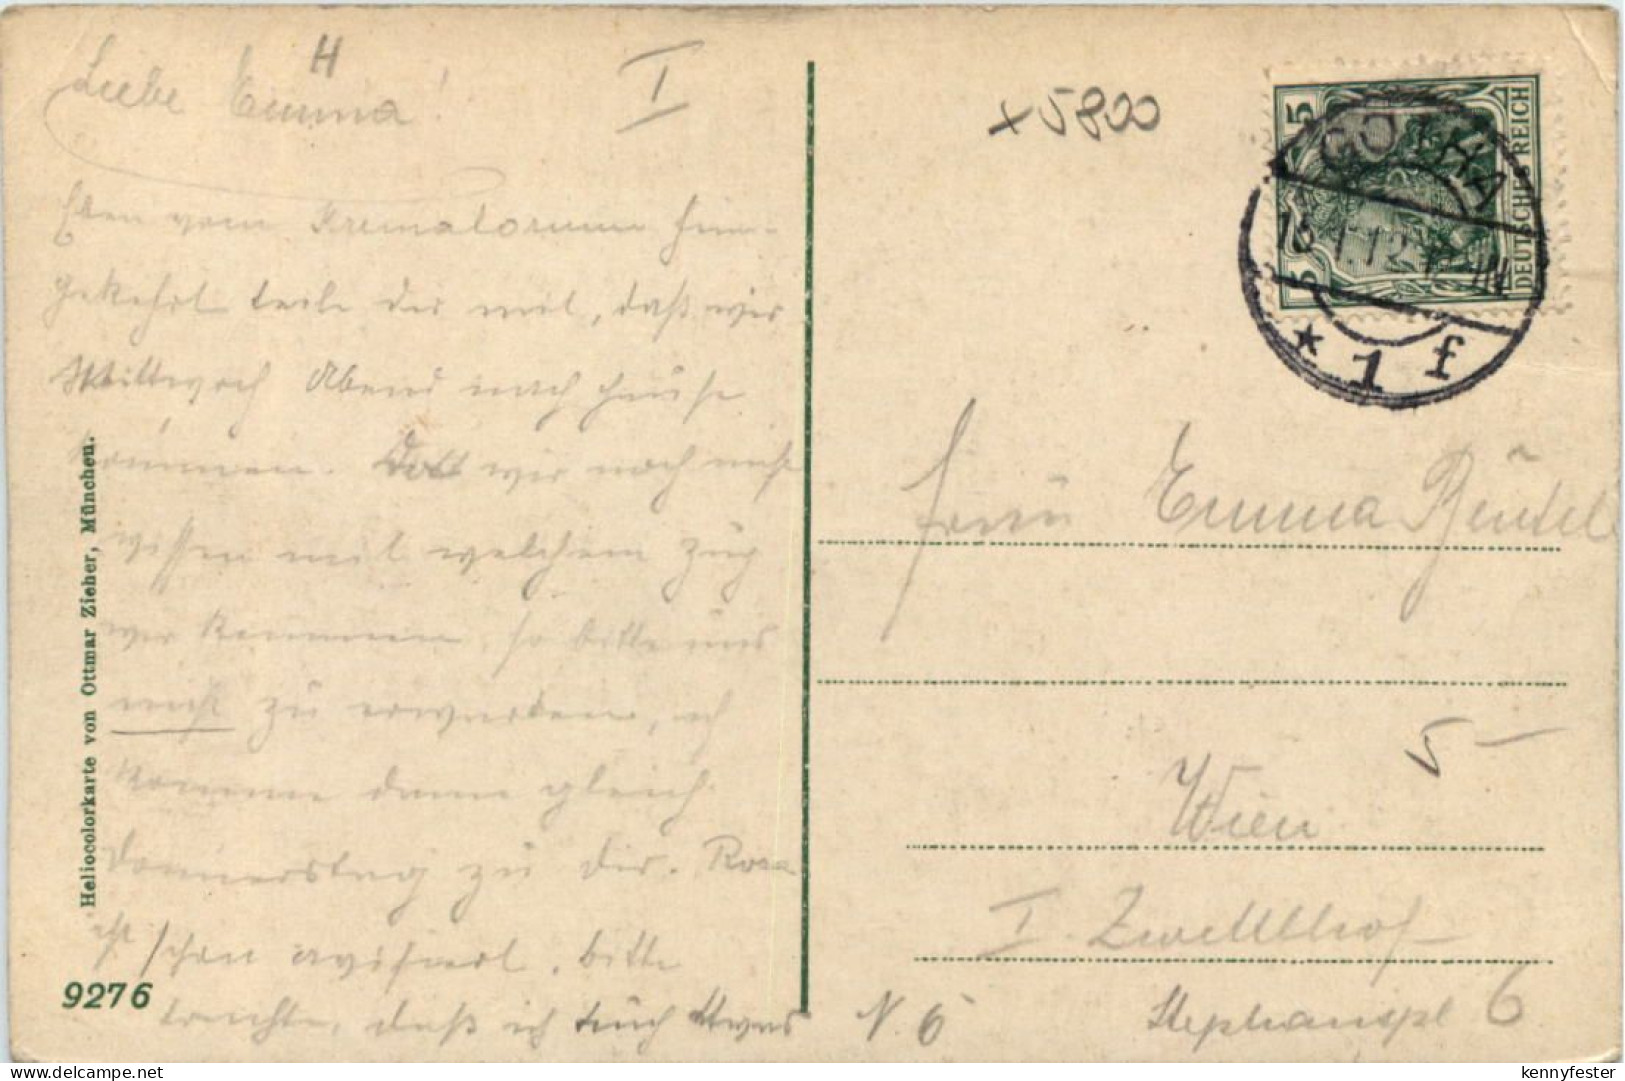 H
Liebe Emma! I
Eben vom Krematorium heim-
gekehrt teile dir mit, daß wir
Mittwoch Abend nach Hause
kommen. Da wir noch nicht
wissen mit welchem Zug
wir kommen, so bitte uns
nicht zu erwarten, ich
komme dann gleich
Donnerstag zu dir. Rosa
ist schon avisiert. bitte
trachte, daß ich Euch
Heliocolorkarte von Ottmar Zieher, München.
9276
+5800
DEUTSCHES REICH
5 5
GOTHA
16
* 1 f
Frau Emma Beutel
Wien
5 –
I. Zwettlhof
Stephanspl 6
N. 6
kennyfester